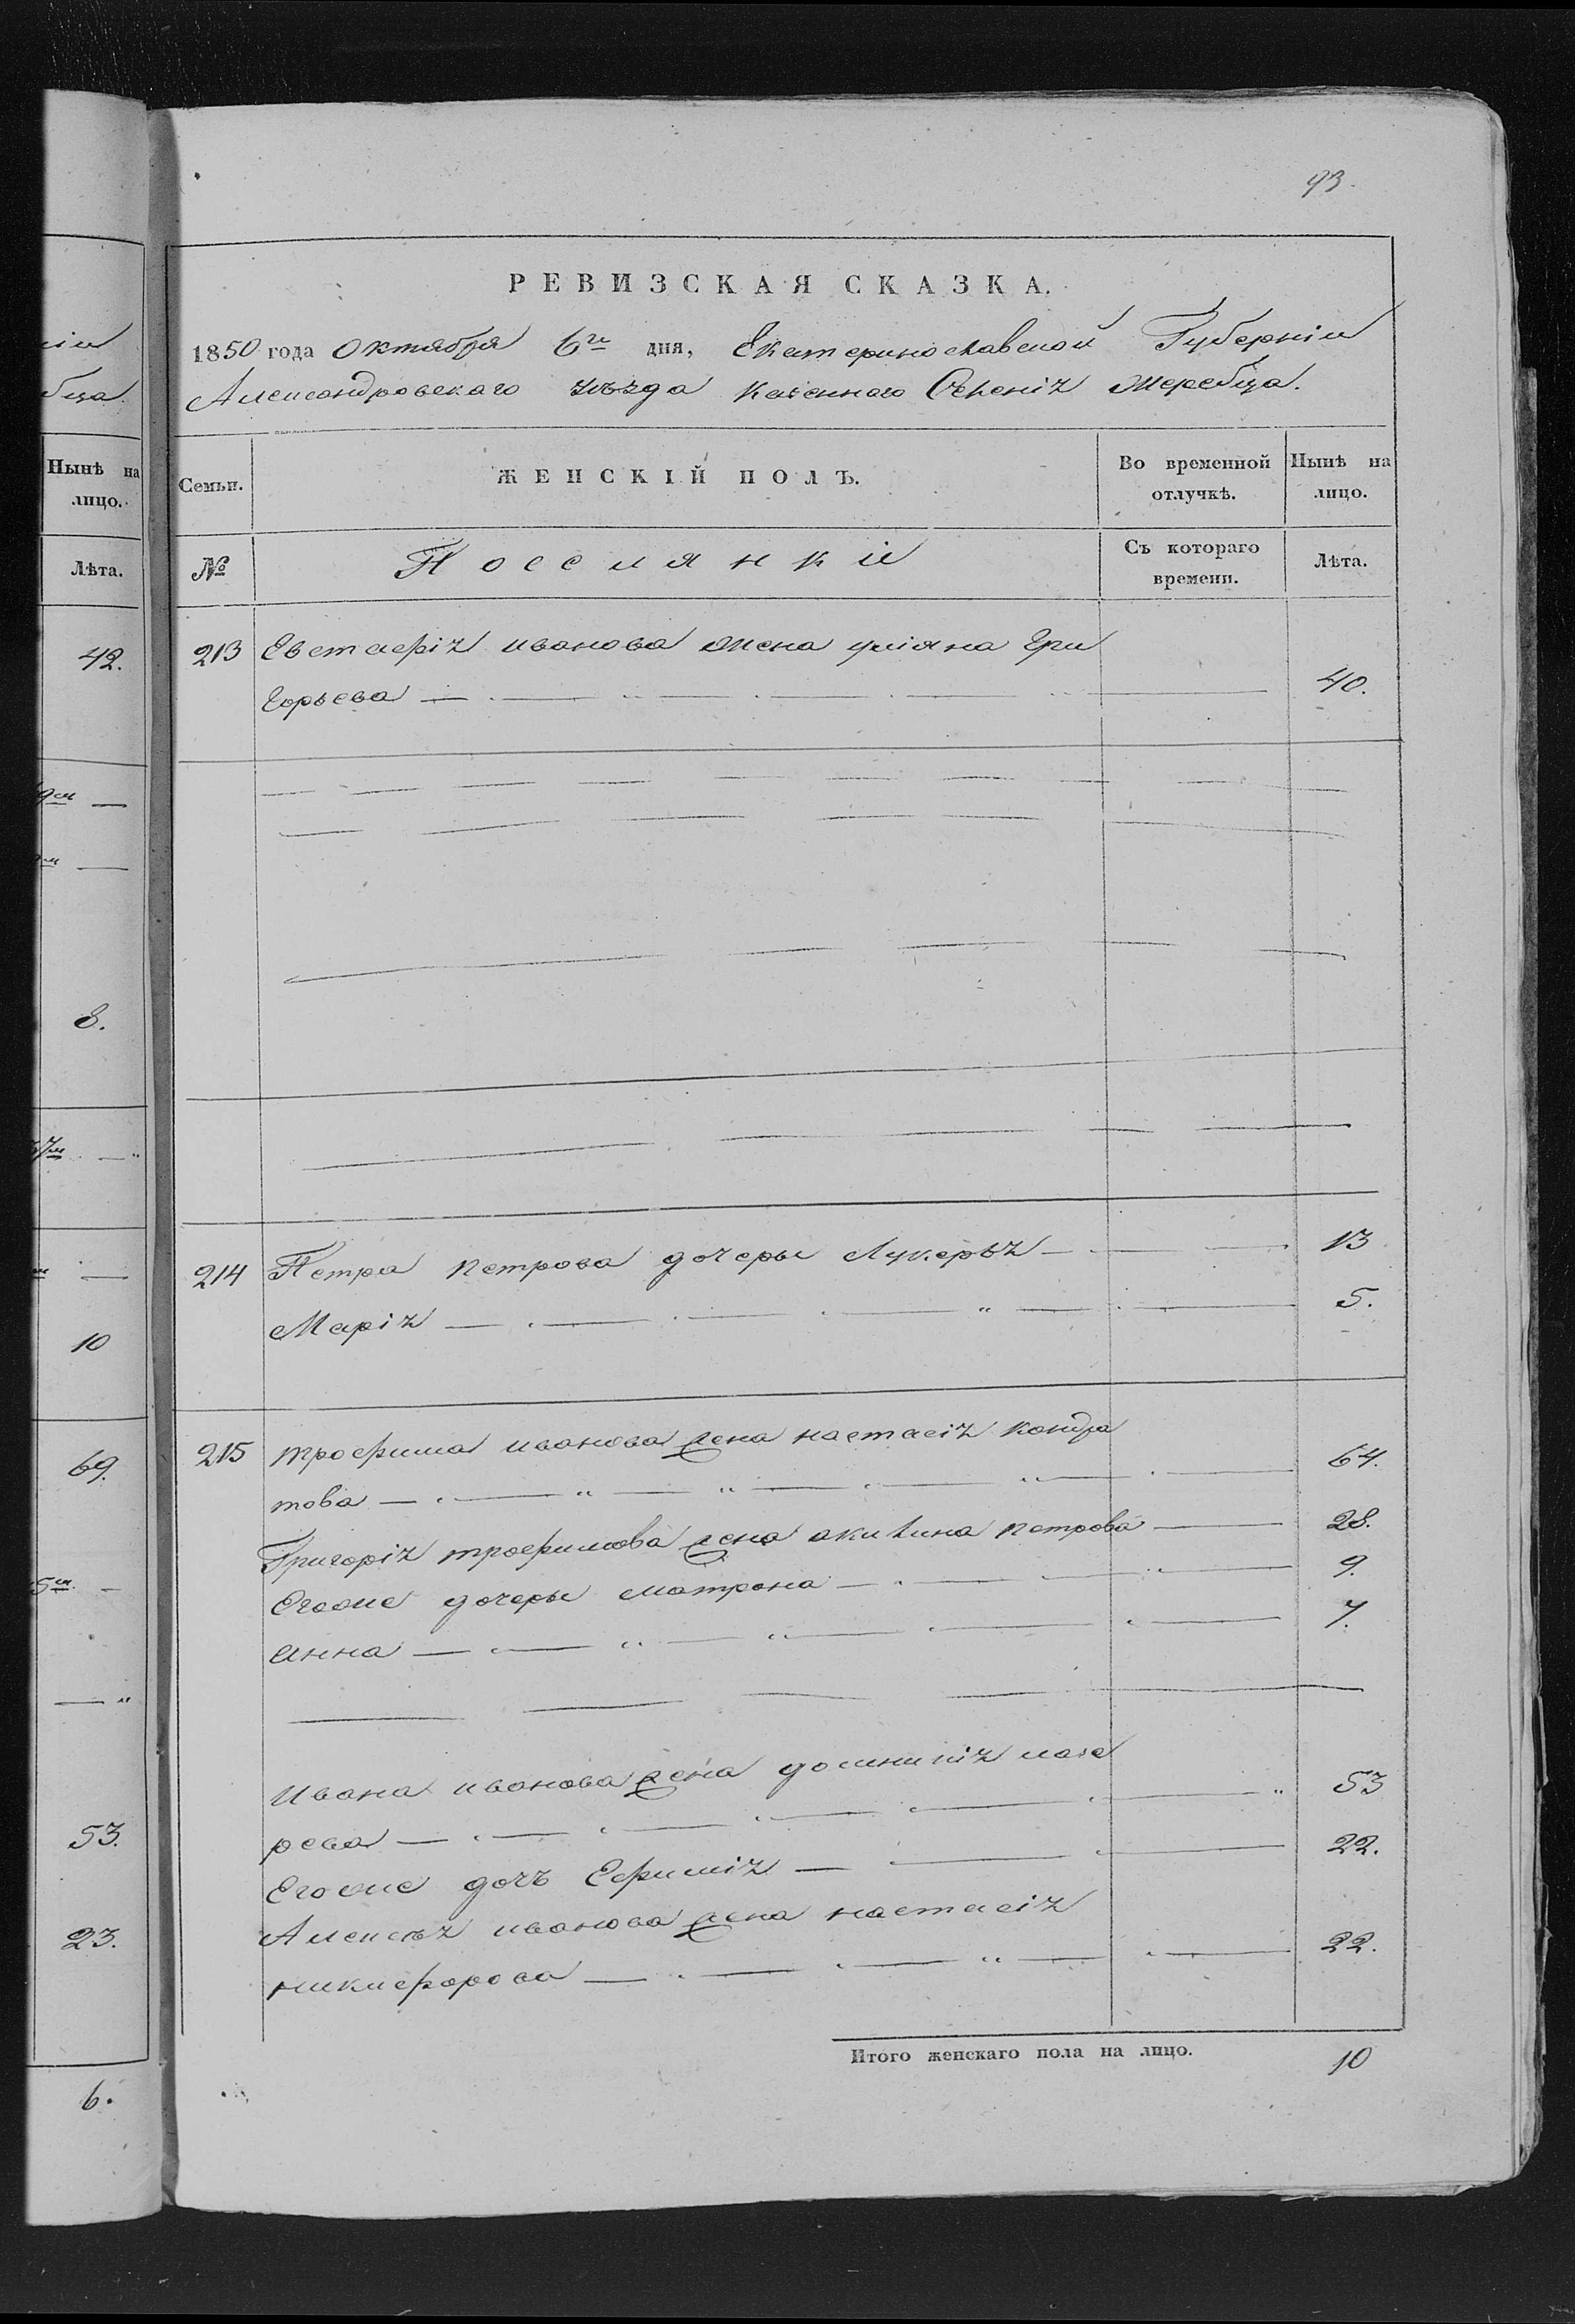 93.
РЕВИЗСКАЯ СКАЗКА.
1850 года Октября 6го дня, Екатеринославской Губерніи
Александровскаго уѣзда казеннаго Селенія Жеребца.
Семьи. ЖЕНСКІЙ ПОЛЪ. Во временной отлучкѣ. Нынѣ на лицо.
№ Поселянки Съ котораго времени. Лѣта.
213 Евстафія иванова жена уліяна Гри
горьева 40.
214 Петра петрова дочеры Лукерья 13
Марія 5.
215 трофима иванова жена настасія кондра
това 64.
Григорія трофимова жена акилина петрова 28.
Егоже дочеры матрона 9.
анна 7.
Ивана иванова жена домникія лаза
рева 53
Егоже дочъ Ефимія 22.
Алексѣя иванова жена настасія
никифорова 22.
Итого женскаго пола на лицо. 10
ніи
бца
Нынѣ на
лицо.
Лѣта.
42.
8.
10
69.
53.
23.
6.